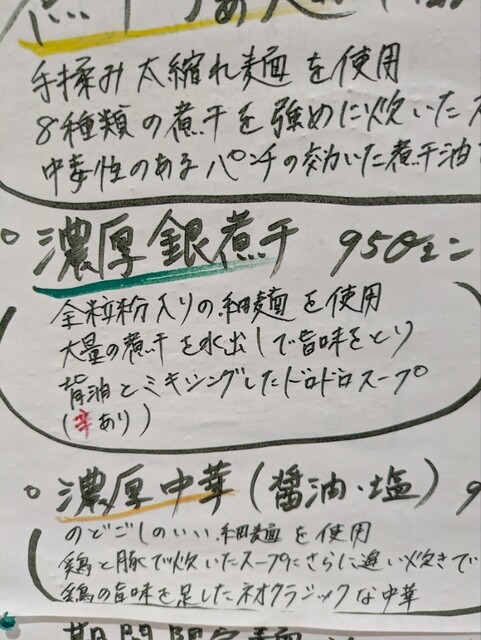 煮干
手揉み太縮れ麺を使用
8種類の煮干を強めに炊いたス
中毒性のあるパンチの効いた煮干油
濃厚銀煮干 950エン
全粒粉入りの細麺を使用
大量の煮干を水出しで旨味をとり
背油とミキシングしたドロドロスープ
(辛あり)
濃厚中華(醤油・塩) 9
のどごしのいい細麺を使用
鶏と豚で炊いたスープにさらに追い炊きで
鶏の旨味を足したネオクラシックな中華
期間限定麺